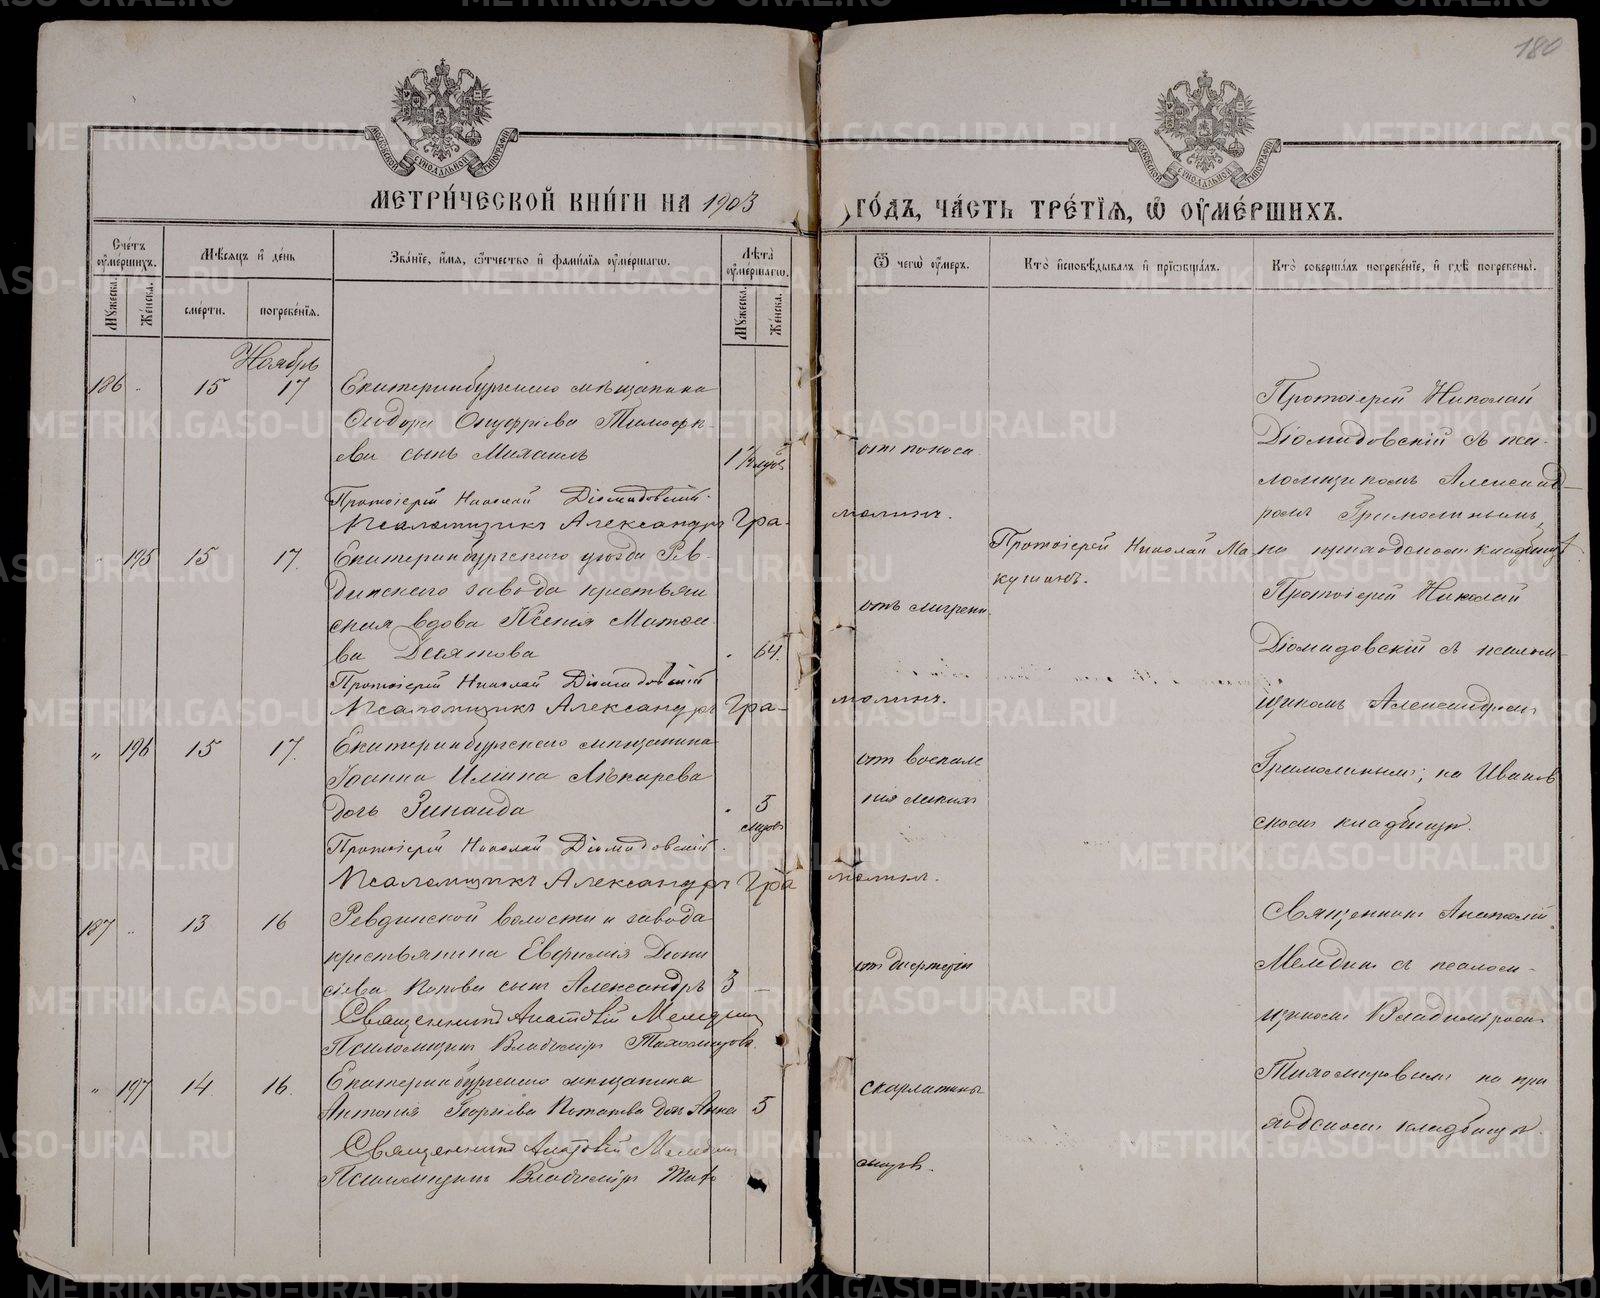 180
МОСКОВСКОЙ СѴНОДАЛЬНОЙ ТИПОГРАФІИ
МОСКОВСКОЙ СѴНОДАЛЬНОЙ ТИПОГРАФІИ
МЕТРИ́ЧЕСКОЙ КНИ́ГИ НА 1903
ГО́ДЪ, ЧА́СТЬ ТРЕ́ТІѦ, Ѡ ОУМЕ́РШИХЪ.
Сче́тъ оуме́ршихъ.
Мѣ́сяцъ и де́нь
Зва́ніе, и́мя, ѻ́тчество и фами́лія оуме́ршагѡ.
Лѣ́та оуме́ршагѡ.
Ѿ чегѡ̀ оу́меръ.
Кто̀ исповѣ́дывалъ и пріобща́лъ.
Кто̀ соверша́лъ погребе́ніе, и гдѣ̀ погребены̀.
Му́жеска.
Же́нска.
сме́рти.
погребе́нія.
Му́жеска.
Же́нска.
Ноябрь
186 " 15 17 Екатеринбургскаго мѣщанина
Ѳеодора Онуфріева Тимофѣ-
ева сынъ Михаилъ
от поноса
Протоіерей Николай
Діомидовскій съ пса-
ломщикомъ Александ-
ромъ Грамолинымъ,
на приходскомъ кладбищѣ
Протоіерей Николай Діомидовскій.
Псаломщикъ Александръ Гра-
молинъ.
" 195 15 17. Екатеринбургскаго уѣзда Рев-
динскаго завода крестьян
ская вдова Ксенія Матѳе
ва Десятова " 64.
отъ
Протоіерей Николай Ма
кушинъ.
Протоіерей Николай
Діомидовскій съ псалом-
щикомъ Александромъ
Грамолинымъ, на Иванов
скомъ кладбищѣ.
Протоіерей Николай Діомидовскій
Псаломщикъ Александръ Гра-
молинъ.
" 196 15 17. Екатеринбургскаго мѣщанина
Іоанна Ильина Лѣкарева
дочь Зинаида " 5
мѣсяц
от воспале
нія легких
Протоіерей Николай Діомидовскій.
Псаломщикъ Александръ Гра
молинъ.
187 " 13 16 Ревдинской волости и завода
крестьянина Евфимія Діони
сіева Попова сынъ Александръ 3 –
от дифтеріи
Священникъ Анатолій
Меледин съ псалом-
щикомъ Владиміромъ
Тихомировымъ на при
ходскомъ кладбищѣ.
Священникъ Анатолій Меледин
Псаломщикъ Владиміръ Тихомировъ.
" 197 14. 16. Екатеринбургскаго мѣщанина
Антонія Георгіева Потапова дочь Анна 5
скарлатины
Священникъ Анатолій Меледин
Псаломщикъ Владиміръ Тихо
мировъ.
METRIKI.GASO-URAL.RU